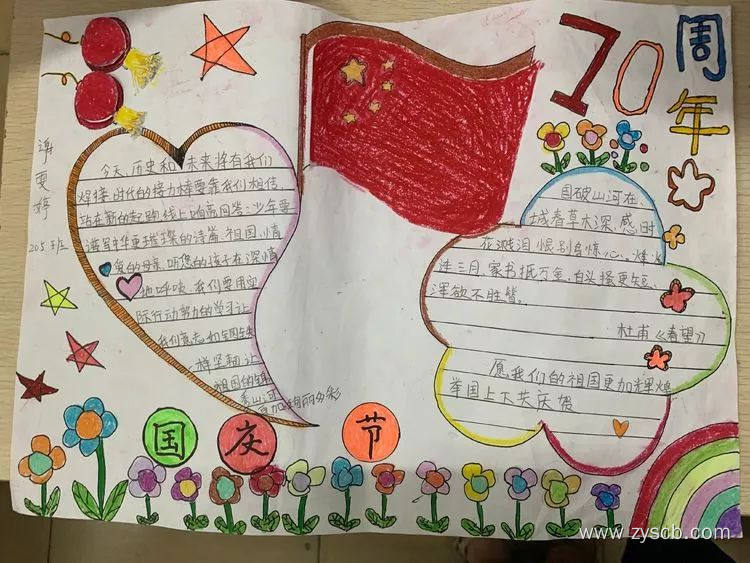 70周年
谢雯婷
205
今天,历史和未来将有我们
焊接.时代的接力棒要靠我们相传
站在新的起跑线上响亮回答:少年要
谱写中华更璀璨的诗篇.祖国,
爱的母亲,听您的孩子在深情
地呼唤.我们要用实
际行动努力的学习.让
我们意志
样坚韧.让
祖国的锦
秀山河
更加绚丽多彩
国破山河在,
城春草木深,感时
花溅泪,恨别鸟惊心。烽火
连三月,家书抵万金.白头搔更短,
浑欲不胜簪。
杜甫《春望》
愿我们的祖国更加辉煌
举国上下共庆贺
国庆节
www.zyscb.com